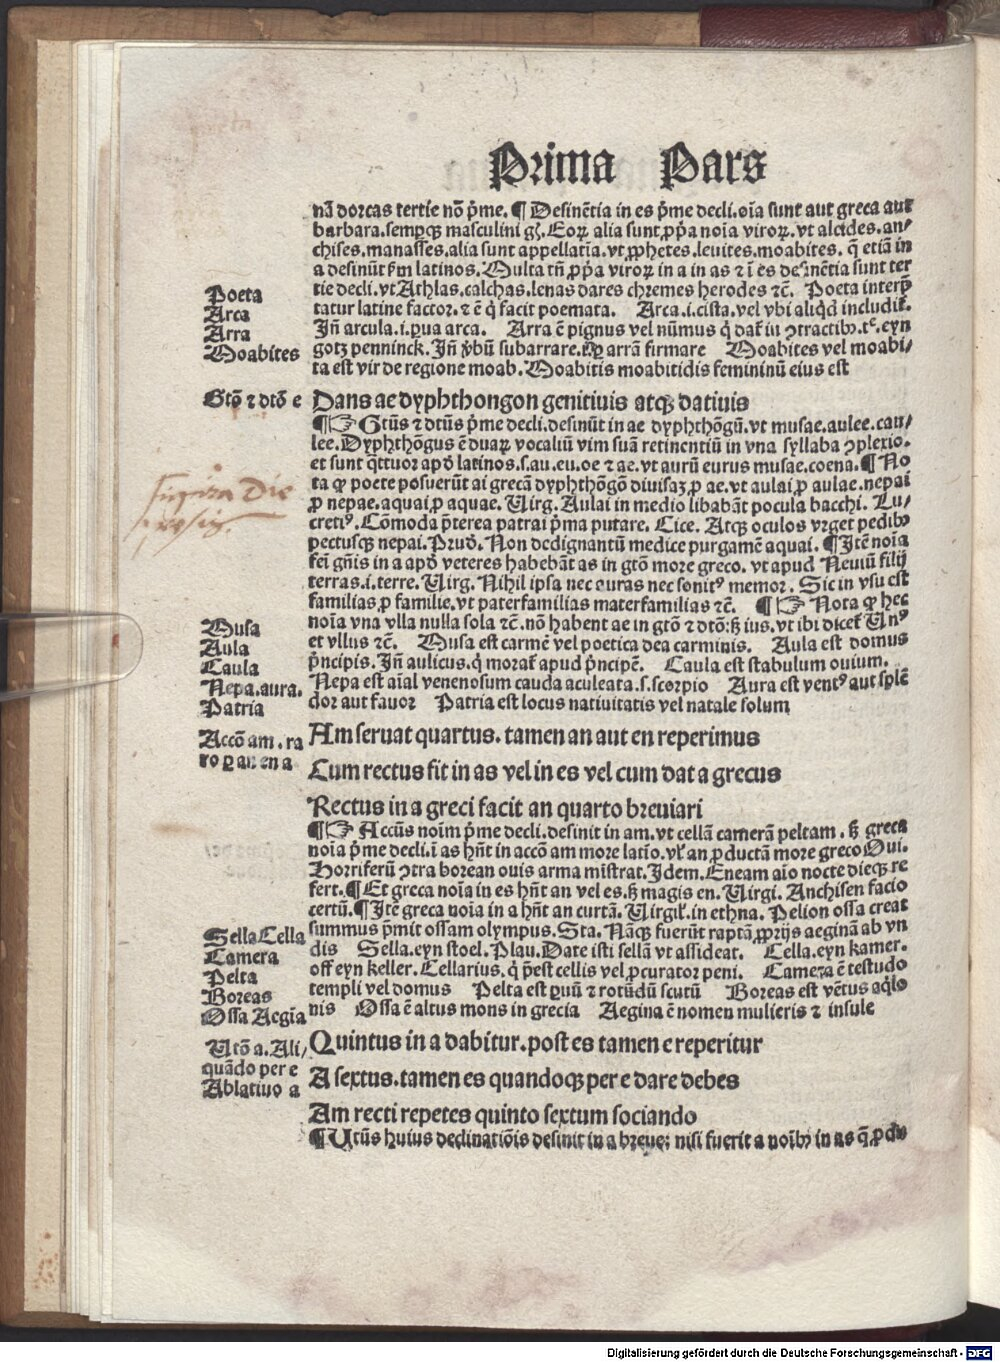 Prima Pars
nā dorcas tertie nō p̄me. ¶ Desinētia in es p̄me decli. oīa sunt aut greca aut
barbara. sempqꝫ masculini gꝫ. Eoꝝ alia sunt ꝓpꝛa noīa viroꝝ. vt alcides. an/
chises. manasses. alia sunt appellatīa. vt ꝓphetes. leuites. moabites. q̄ etiā in
a desinūt scd̄m latinos. Multa tn̄ ꝓpꝛa viroꝝ in a in as ⁊ ī es desinētia sunt ter
tie decli. vt Athlas. calchas. lenas dares chremes herodes ⁊c̄. Poeta interp̄
tatur latine factor. ⁊ ē q̇ facit poemata. Arca .i. cista. vel vbi aliqd̄ includit̃.
Jn̄ arcula .i. ꝑua arca. Arra ē pignus vel nūmus q̇ dat̃ in ꝯtractibꝫ. tͨ. eyn
gotz penninck. Jn̄ v̄bū subarrare. arrā firmare Moabites vel moabi/
ta est vir de regione moab. Moabitis moabitidis femininū eius est
Poeta
Arca
Arra
Moabites
Gtō ⁊ dtō e
Dans ae dyphthongon genitiuis atqꝫ datiuis
¶☞ Gtūs ⁊ dtūs p̄me decli. desinūt in ae dyphthōgū. vt musae. aulee. cau/
lee. Dyphthōgus ē duaꝝ vocaliū vim suā retinentiū in vna syllaba ꝯplexio.
et sunt q̄ttuor apd̄ latinos. s. au. eu. oe ⁊ ae. vt aurū eurus musae. coena. ¶ No
ta ꝙ poete posuerūt ai grecā dyphthōgō diuisaꝫ ꝓ ae. vt aulai ꝓ aulae. nepai
ꝓ nepae. aquai ꝓ aquae. Virg. Aulai in medio libabāt pocula bacchi. Lu/
cretiꝰ. Cōmoda p̄terea patrai p̄ma putare. Cice. Atqꝫ oculos vrget pedibꝫ
pectusqꝫ nepai. Prud̄. Non dedignantū medice purgamē aquai. ¶ Jtē noīa
fei gn̄is in a apd̄ veteres habebāt as in gtō more greco. vt apud Neuiū filij
terras .i. terre. Virg. Nihil ipsa nec auras nec sonitꝰ memor. Sic in vsu est
familias ꝓ familie. vt paterfamilias materfamilias ⁊c̄. ¶☞ Nota ꝙ hec
noīa vna vlla nulla sola ⁊c̄. nō habent ae in gtō ⁊ dtō: sꝫ ius. vt ibi dicet̃ Vnꝰ
et vllus ⁊c̄. Musa est carmē vel poetica dea carminis. Aula est domus
p̄ncipis. Jn̄ aulicus. q̇ morat̃ apud p̄ncipē. Caula est stabulum ouium.
Nepa est aīal venenosum cauda aculeata .s. scorpio Aura est ventꝰ aut splē
dor aut fauor Patria est locus natiuitatis vel natale solum
Musa
Aula
Caula
Nepa. aura.
Patria
Accō am. ra
ro ꝑ an en a
Am seruat quartus. tamen an aut en reperimus
Cum rectus fit in as vel in es vel cum dat a grecus
Rectus in a greci facit an quarto breuiari
¶☞ Accūs noīm p̄me decli. desinit in am. vt cellā camerā peltam. sꝫ greca
noīa p̄me decli. ī as hn̄t in accō am more latīo. vł an ꝓductā more greco Oui.
Horriferū ꝯtra borean ouis arma mistrat. Jdem. Eneam aīo nocte dieqꝫ re
fert. ¶ Et greca noīa in es hn̄t an vel es. sꝫ magis en. Virgi. Anchisen facio
certū. ¶ Jtē greca noīa in a hn̄t an curtā. Virgił. in ethna. Pelion ossa creat
summus p̄mit ossam olympus. Sta. Nāqꝫ fuerūt raptā ꝓprijs aeginā ab vn
dis Sella. eyn stoel. Plau. Date isti sellā vt assideat. Cella. eyn kamer.
off eyn keller. Cellarius. q̇ p̄est cellis vel ꝓcurator peni. Camera ē testudo
templi vel domus Pelta est ꝑuū ⁊ rotūdū scutū Boreas est vētus aq̇lo
nis Ossa ē altus mons in grecia Aegina ē nomen mulieris ⁊ insule
Sella Cella
Camera
Pelta
Boreas
Ossa Aegīa
Vtō a. Ali/
quādo per e
Ablatiuo a
Quintus in a dabitur. post es tamen e reperitur
A sextus. tamen es quandoqꝫ per e dare debes
Am recti repetes quinto sextum sociando
¶ Vtūs huius declinatiōis desinit in a breue: nisi fuerit a noībꝫ in as q̄ ꝓdu
Digitalisierung gefördert durch die Deutsche Forschungsgemeinschaft - DFG